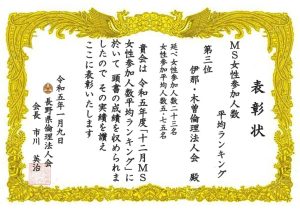 表彰状
MS女性参加人数
平均ランキング
第三位
伊那・木曽倫理法人会 殿
延べ女性参加人数二十三名
女性参加平均人数五・七五名
貴会は令和五年度「十二月MS
女性参加人数平均ランキング」に
於いて頭書の成績を収められま
したので その実績を讃え
ここに表彰いたします
令和五年一月九日
長野県倫理法人会
会長 市川 英治